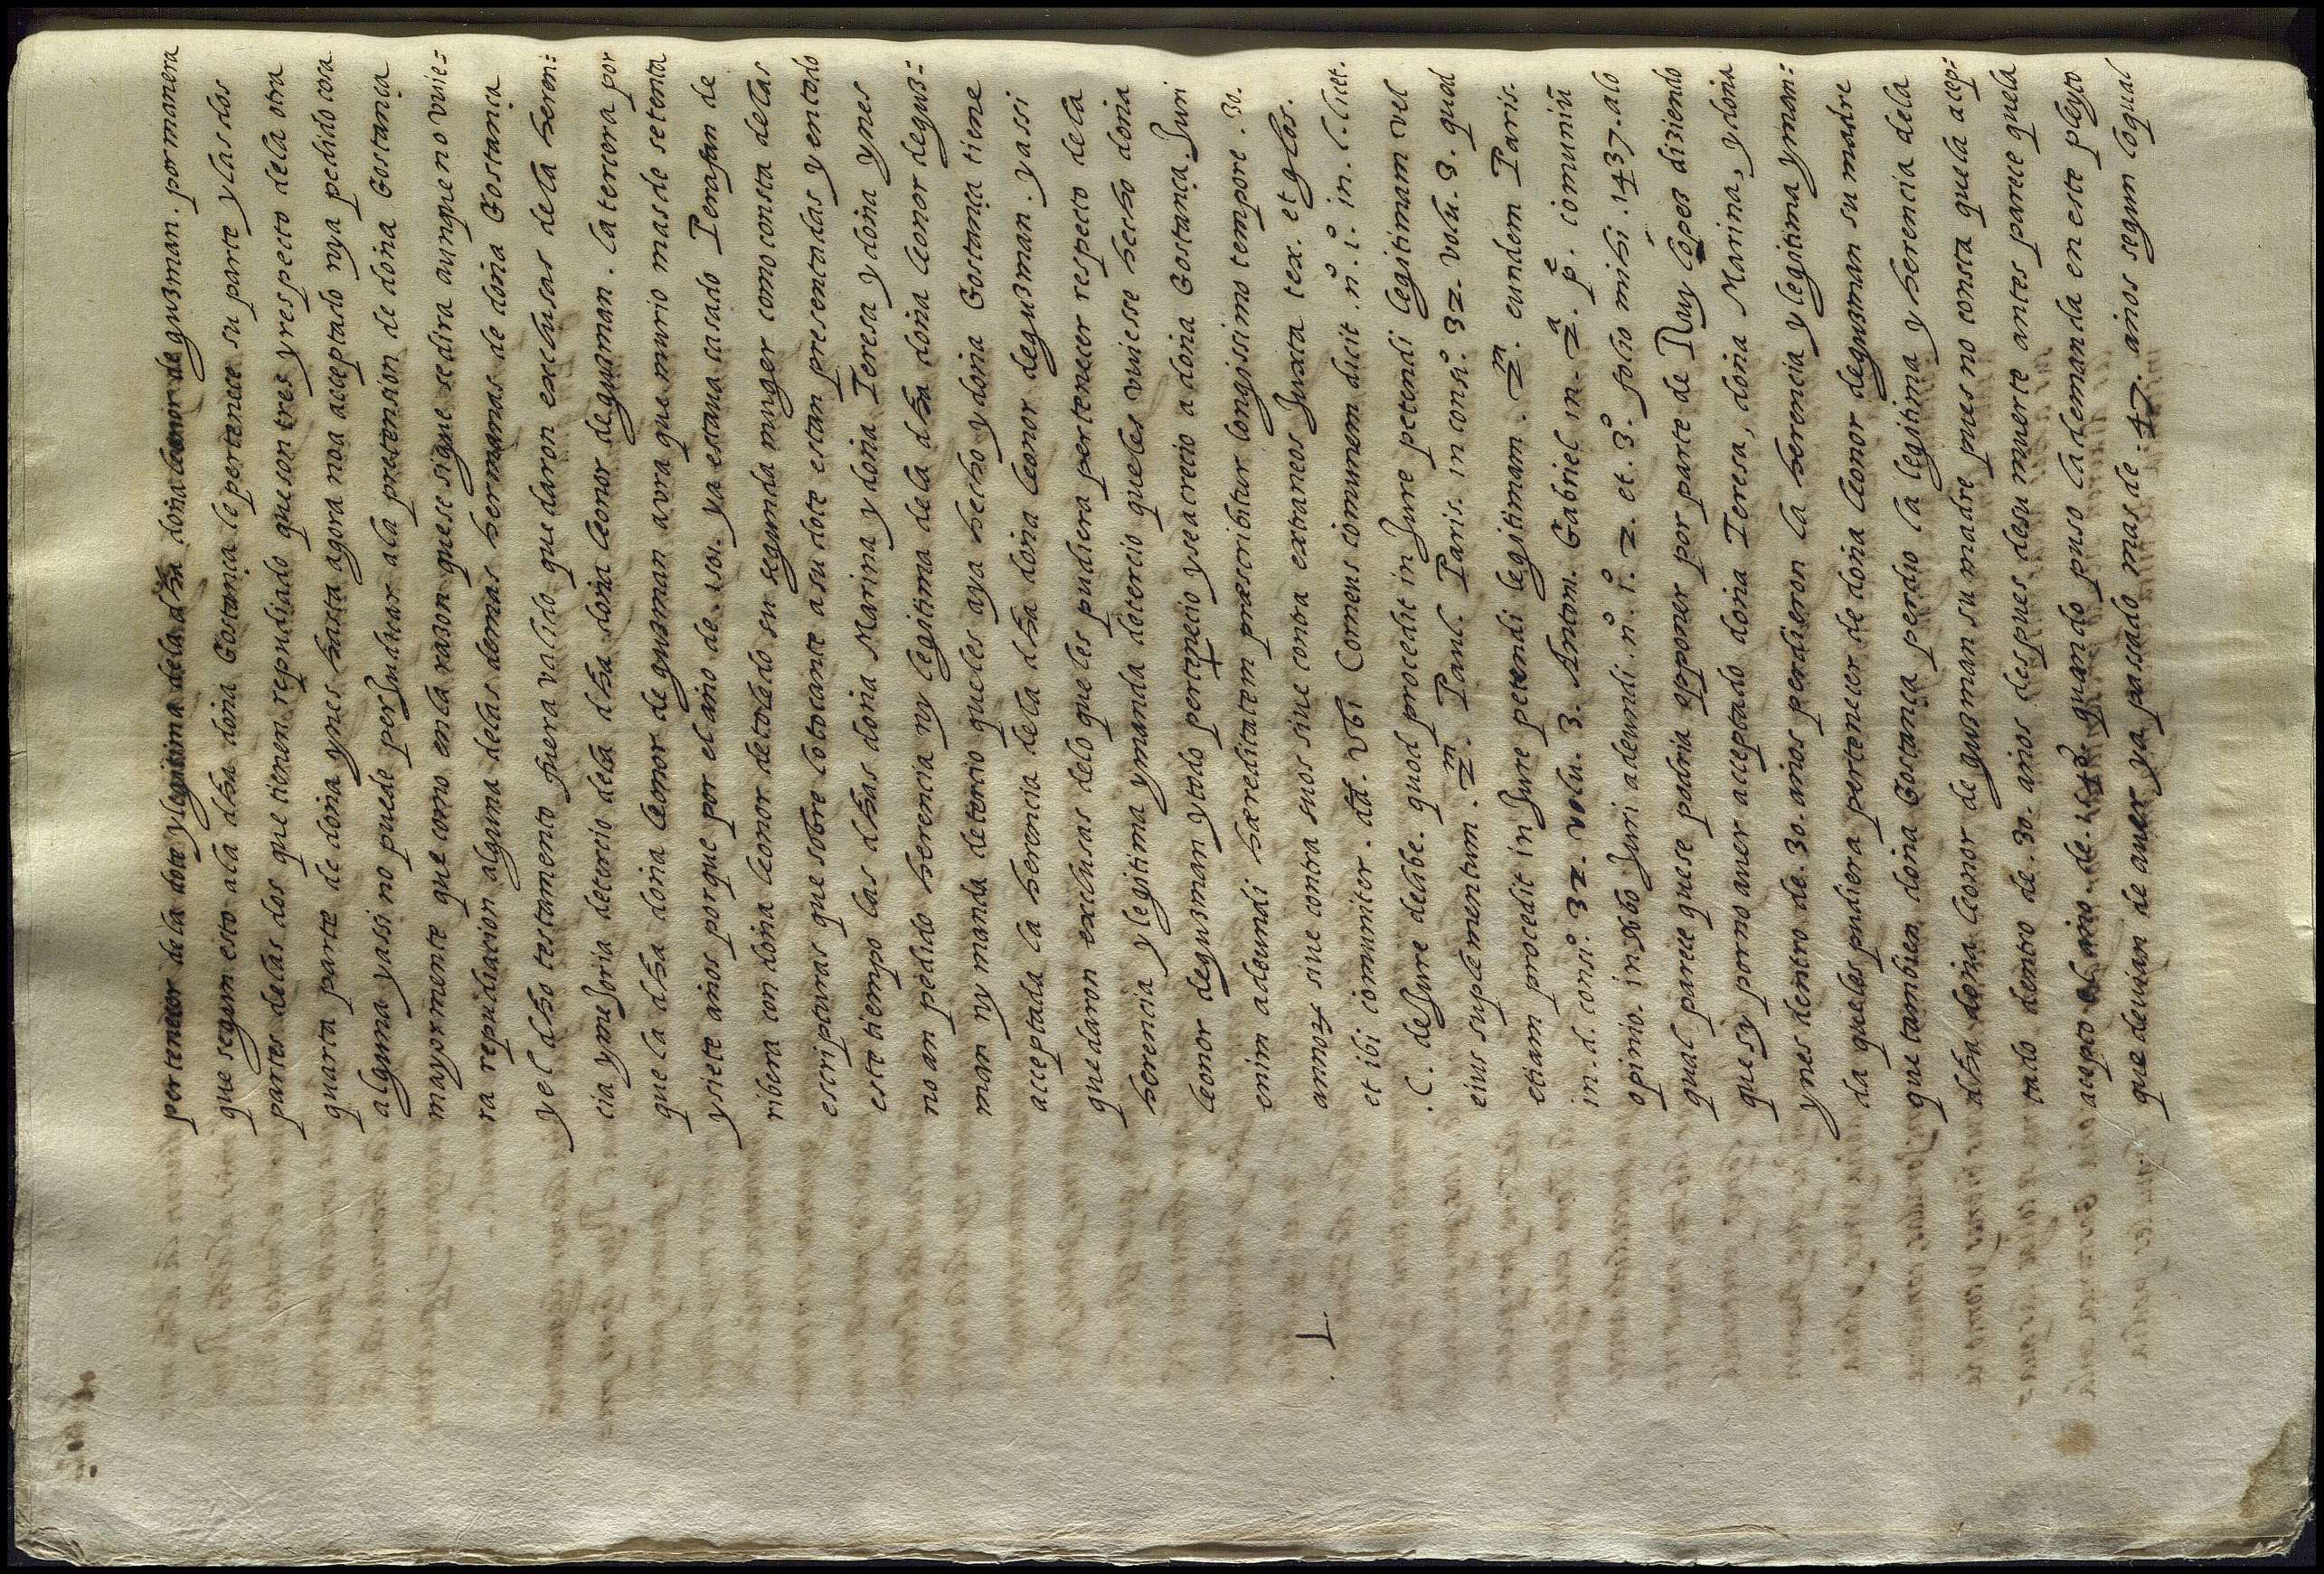 pertenecer de la dote y legitima de la dha doña leonor de guzman. por manera
que segun esto ala dha doña Costança le pertenece su parte y las dos
partes delas dos que tienen repudiado que son tres y respecto dela otra
quarta parte de doña ynes hasta agora no a acceptado ny a pedido cosa
alguna y assi no puede perjudicar ala pretension de doña Costança
mayormente que como en la razon que se sigue se dira aunque no vuie=
ra repudiacion alguna delas demas hermanas de doña Costança
y el dho testamento fuera valido quedaron exclusas de la heren=
cia y mejoria de tercio dela dha doña leonor de guzman. la tercera por
que la dha doña leonor de guzman avra que murio mas de setenta
y siete años porque por el año de .1501. ya estaua casado Perafan de
ribera con doña leonor de toledo su segunda muger como consta delas
escripturas que sobre lo tocante a su dote estan presentadas y en todo
este tiempo las dhas doña Marina y doña Teresa y doña ynes
no an pedido herencia ny legitima dela dha doña leonor de guz=
man ny manda de tercio que les aya hecho y doña Costança tiene
acceptada la herencia dela dha doña leonor de guzman. y assi
quedaron exclusas delo que les pudiera pertenecer respecto dela
herencia y legitima y manda de tercio que les vuiesse hecho doña
leonor de guzman y todo pertenecio y se acrecio a doña Costança. Juri
enim adeundi hæreditatem præscribitur longissimo tempore .30.
annoꝝ siue contra suos siue contra extraneos Juxta tex. et glos.
et ibi communiter. dd. vbi Corneus communem dicit .nº.1º. in.l.licet.
.C. de Jure delibe. quod procedit in Jure petendi legitimam vel
eius suplementum .2m. Paul. Paris. in consi.º 32. volu. 3. quod
etiam procedit in Jure petendi legitimam .2m. eundem Paris.
in.d. consi.º 32. volu. 3. Anton. Gabriel in .2a. pe. comuniū
opinio. in vbo Juri adeundi .nº.1º. 2. et. 3º. folio mihi .1437. alo
qual parece que se podria opponer por parte de Ruy lópez diziendo
que sy por no auer acceptado doña Teresa, doña Marina, y doña
ynes dentro de .30. años perdieron la herencia y legitima y man=
da que les pudiera pertenecer de doña leonor de guzman su madre
que tambien doña Costança perdio la legitima y herencia dela
dha doña leonor de guzman su madre pues no consta que la acep=
tado dentro de .30. años despues de su muerte antes parece que la
acepto el año de quando puso la demanda en este pleyto
que deuian de auer ya passado mas de .47. años segun lo qual